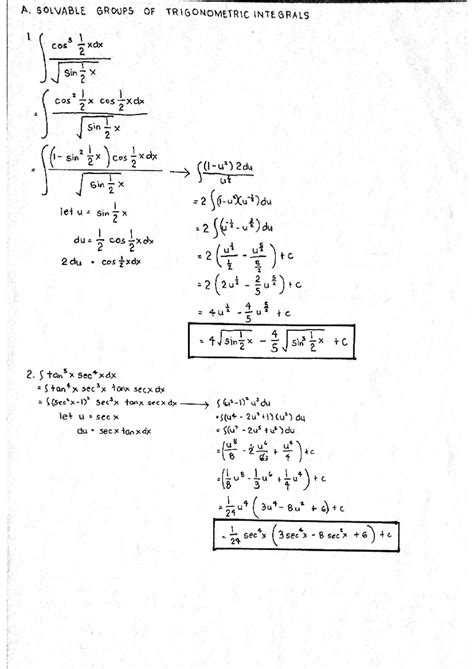 A. SOLVABLE GROUPS OF TRIGONOMETRIC INTEGRALS
1. ∫ cos³ 1/2 x dx / √(sin 1/2 x)
= ∫ cos² 1/2 x cos 1/2 x dx / √(sin 1/2 x)
= ∫ (1 - sin² 1/2 x) cos 1/2 x dx / √(sin 1/2 x) → ∫ (1-u²) 2du / u^(1/2)
let u = sin 1/2 x
du = 1/2 cos 1/2 x dx
2 du = cos 1/2 x dx
= 2 ∫ (1-u²)(u^(-1/2)) du
= 2 ∫ (u^(-1/2) - u^(3/2)) du
= 2 (u^(1/2) / (1/2) - u^(5/2) / (5/2)) + c
= 2 (2u^(1/2) - 2/5 u^(5/2)) + c
= 4u^(1/2) - 4/5 u^(5/2) + c
= 4 √(sin 1/2 x) - 4/5 √(sin⁵ 1/2 x) + c
2. ∫ tan⁵ x sec⁴ x dx
= ∫ tan⁴ x sec³ x tan x sec x dx
= ∫ (sec² x - 1)² sec³ x tan x sec x dx → ∫ (u² - 1)² u³ du
let u = sec x
du = sec x tan x dx
= ∫ (u⁴ - 2u² + 1)(u³) du
= ∫ (u⁷ - 2u⁵ + u³) du
= (u⁸/8 - 2u⁶/63 + u⁴/4) + c
= (1/8 u⁸ - 1/3 u⁶ + 1/4 u⁴) + c
= 1/24 u⁴ (3u⁴ - 8u² + 6) + c
= 1/24 sec⁴ x (3 sec⁴ x - 8 sec² x + 6) + c